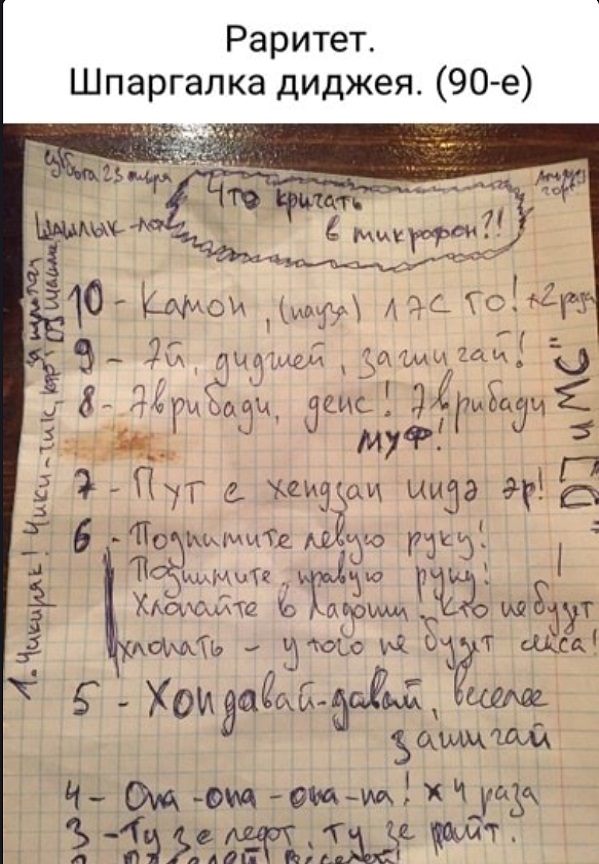 Раритет.
Шпаргалка диджея. (90-е)
суббота 23
Что кричать
в микрофон?!
Шашлык-
10 - Камон, (пауза) лэс го! х2 раза
9 - Эй, диджей, зажигай!
8 - Эврибади, денс! Эврибади
муф!
7 - Пут е хендзап индэ эр!
6 - Поднимите левую руку!
Поднимите правую руку!
Хлопайте в ладоши. Кто не будет
хлопать - у того не будет секса!
5 - Хоп давай-давай, веселее
зажигай
4 - Опа-опа-опа-па! х 4 раза
3 - Ту зе лефт, ту зе райт.
1. Чикиряк! Чики-чик,
"DJ и МС"